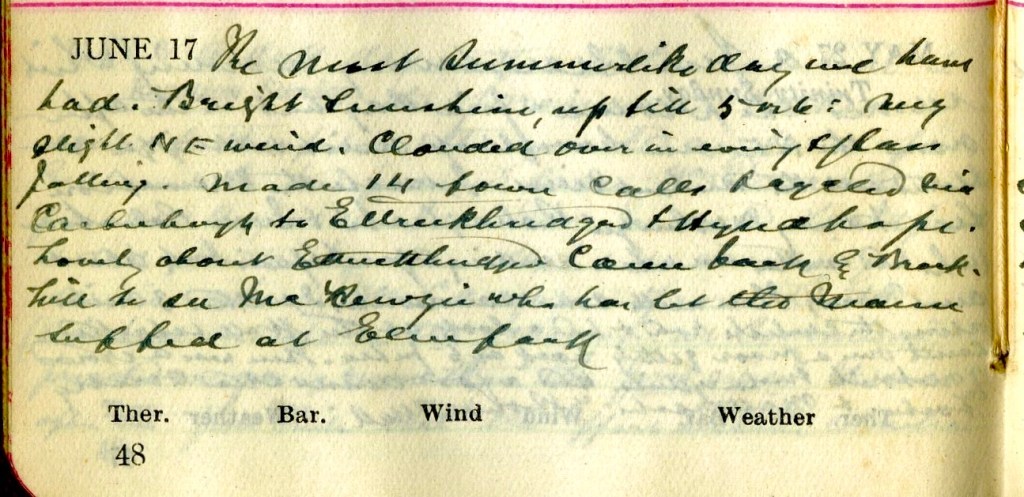 JUNE 17 The most Summerlike day we have
had. Bright Sunshine, up till 5 oclk: very
slight NE wind. Clouded over in evening & glass
falling. Made 14 town calls bicycled via
to Ettrickbridgend & Hyndhope.
Lovely about Ettrickbridgend Came back by Brock-
hill to see McKenzie who has let the Manse
supped at Elmpark
Ther. Bar. Wind Weather
48